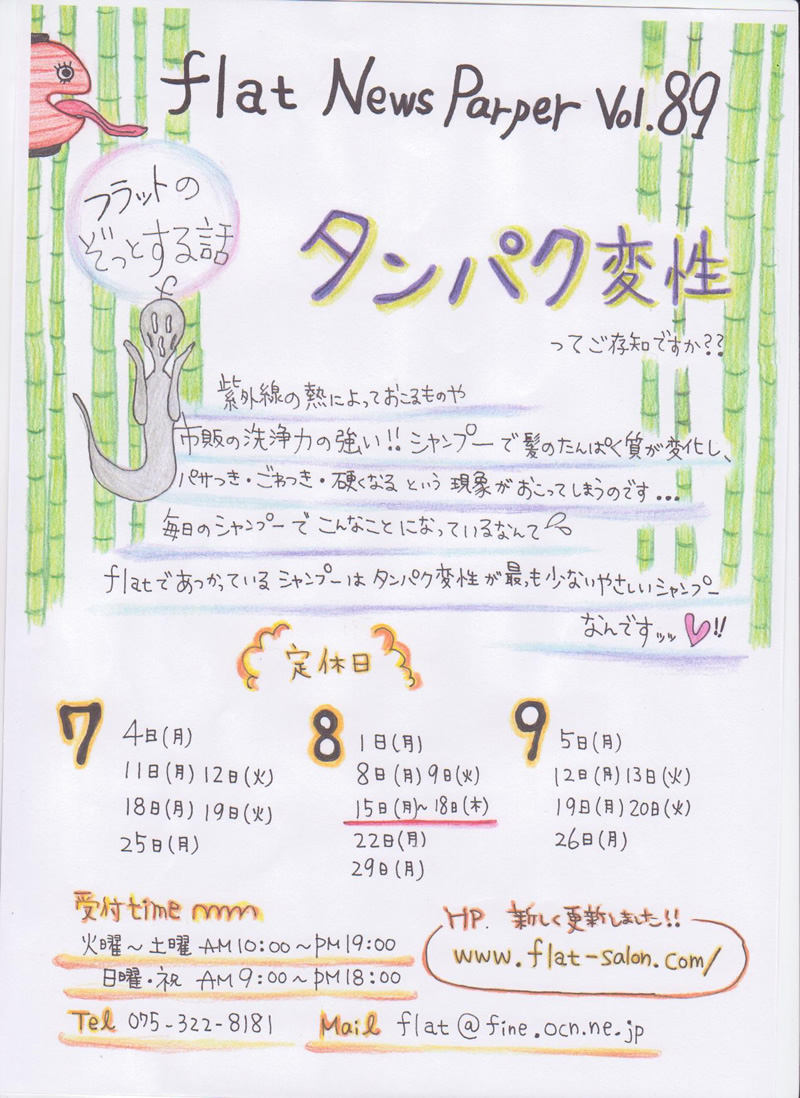 flat News Parper Vol.89
フラットの
ぞっとする話
タンパク変性
ってご存知ですか??
紫外線の熱によっておこるものや
市販の洗浄力の強い!!シャンプーで髪のたんぱく質が変化し、
パサつき・ごわつき・硬くなるという現象がおこってしまうのです...
毎日のシャンプーでこんなことになっているなんて
flatであつかっているシャンプーはタンパク変性が最も少ないやさしいシャンプー
なんですッッ!!
定休日
7
4日(月)
11日(月) 12日(火)
18日(月) 19日(火)
25日(月)
8
1日(月)
8日(月) 9日(火)
15日(月)~18日(木)
22日(月)
29日(月)
9
5日(月)
12日(月) 13日(火)
19日(月) 20日(火)
26日(月)
受付time
火曜~土曜 AM10:00~PM19:00
日曜・祝 AM9:00~PM18:00
HP. 新しく更新しました!!
www.flat-salon.com/
Tel 075-322-8181
Mail flat@fine.ocn.ne.jp